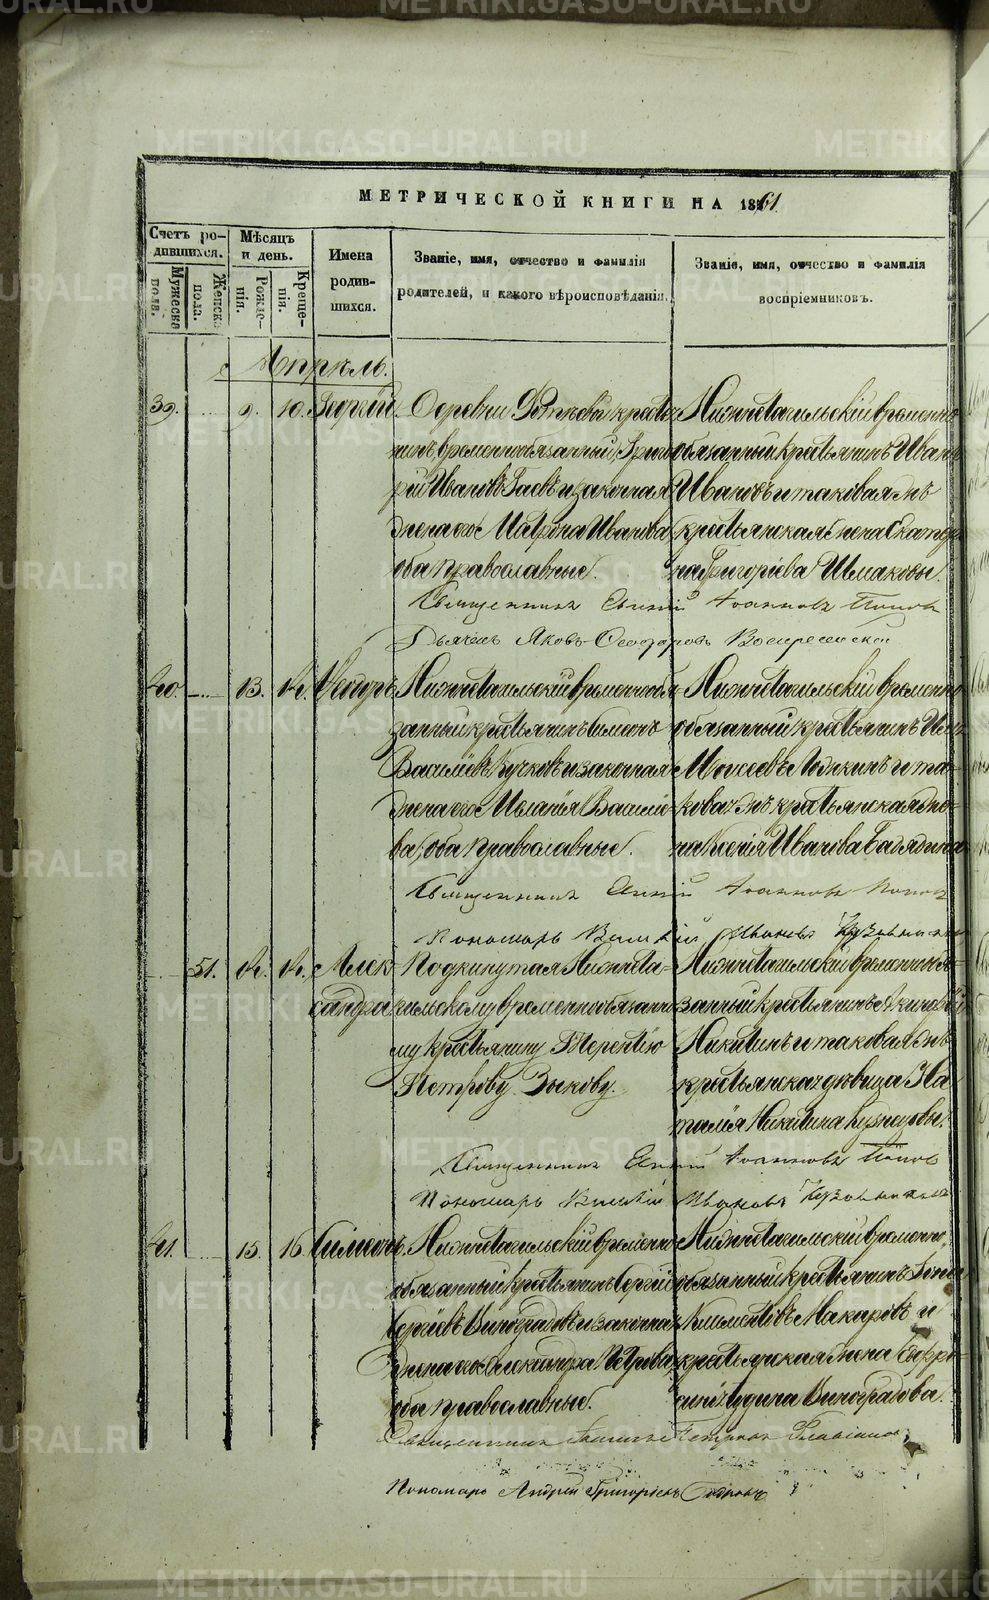 METRIKI.GASO-URAL.RU
МЕТРИЧЕСКОЙ КНИГИ НА 1861
Счетъ ро-
дившихся.
Мужеска
пола.
Женска
пола.
Мѣсяцъ
и день.
Рожде-
нія.
Креще-
нія.
Имена
родив-
шихся.
Званіе, имя, отчество и фамилія
родителей, и какого вѣроисповѣданія.
Званіе, имя, отчество и фамилія
воспріемниковъ.
Апрѣль.
39. 9. 10. Георгій.
Деревни крестья
нинъ временнообязанный Григо
рій Ивановъ Гаевъ и законная
жена его Матрона Иванова
оба православные.
Нижнетагильскій временно
обязанный крестьянинъ Иванъ
Ивановъ и таковая жъ
крестьянская жена Екатери
на Григоріева Шмаковы.
Священникъ Іоанновъ Попов
Дьячекъ Яковъ Ѳеодоровъ
40. 13. 14.
Нижнетагильскій временнообя
занный крестьянинъ Симеонъ
Василіевъ Кучковъ и законная
жена его Василіе-
ва, оба православные.
Нижнетагильскій временно
обязанный крестьянинъ
Моисеевъ и та-
коваяжъ крестьянская же-
на Ксенія Иванова
Священникъ Іоанновъ Попов
Пономарь Василій Ивановъ
51. 14. 14. Алек
сандра
Подкинутая Нижнета-
гильскому временнообязанно
му крестьянину Терентію
Петрову Зыкову.
Нижнетагильскій временнообя
занный крестьянинъ
Никитинъ и таковая жъ
крестьянская дѣвица На
талія Никитина Кузнецовы.
Священникъ Іоанновъ Попов
Пономарь Василій Ивановъ
41. 15. 16. Симеонъ.
Нижнетагильскій временно
обязанный крестьянинъ Сергій
Сергіевъ Виноградовъ и законная
жена его Александра Петрова,
оба православные.
Нижнетагильскій временно
обязанный крестьянинъ
Климентовъ Макаровъ и
крестьянская жена Евфро-
Виноградова.
Священникъ
Пономарь Андрей Григоріевъ